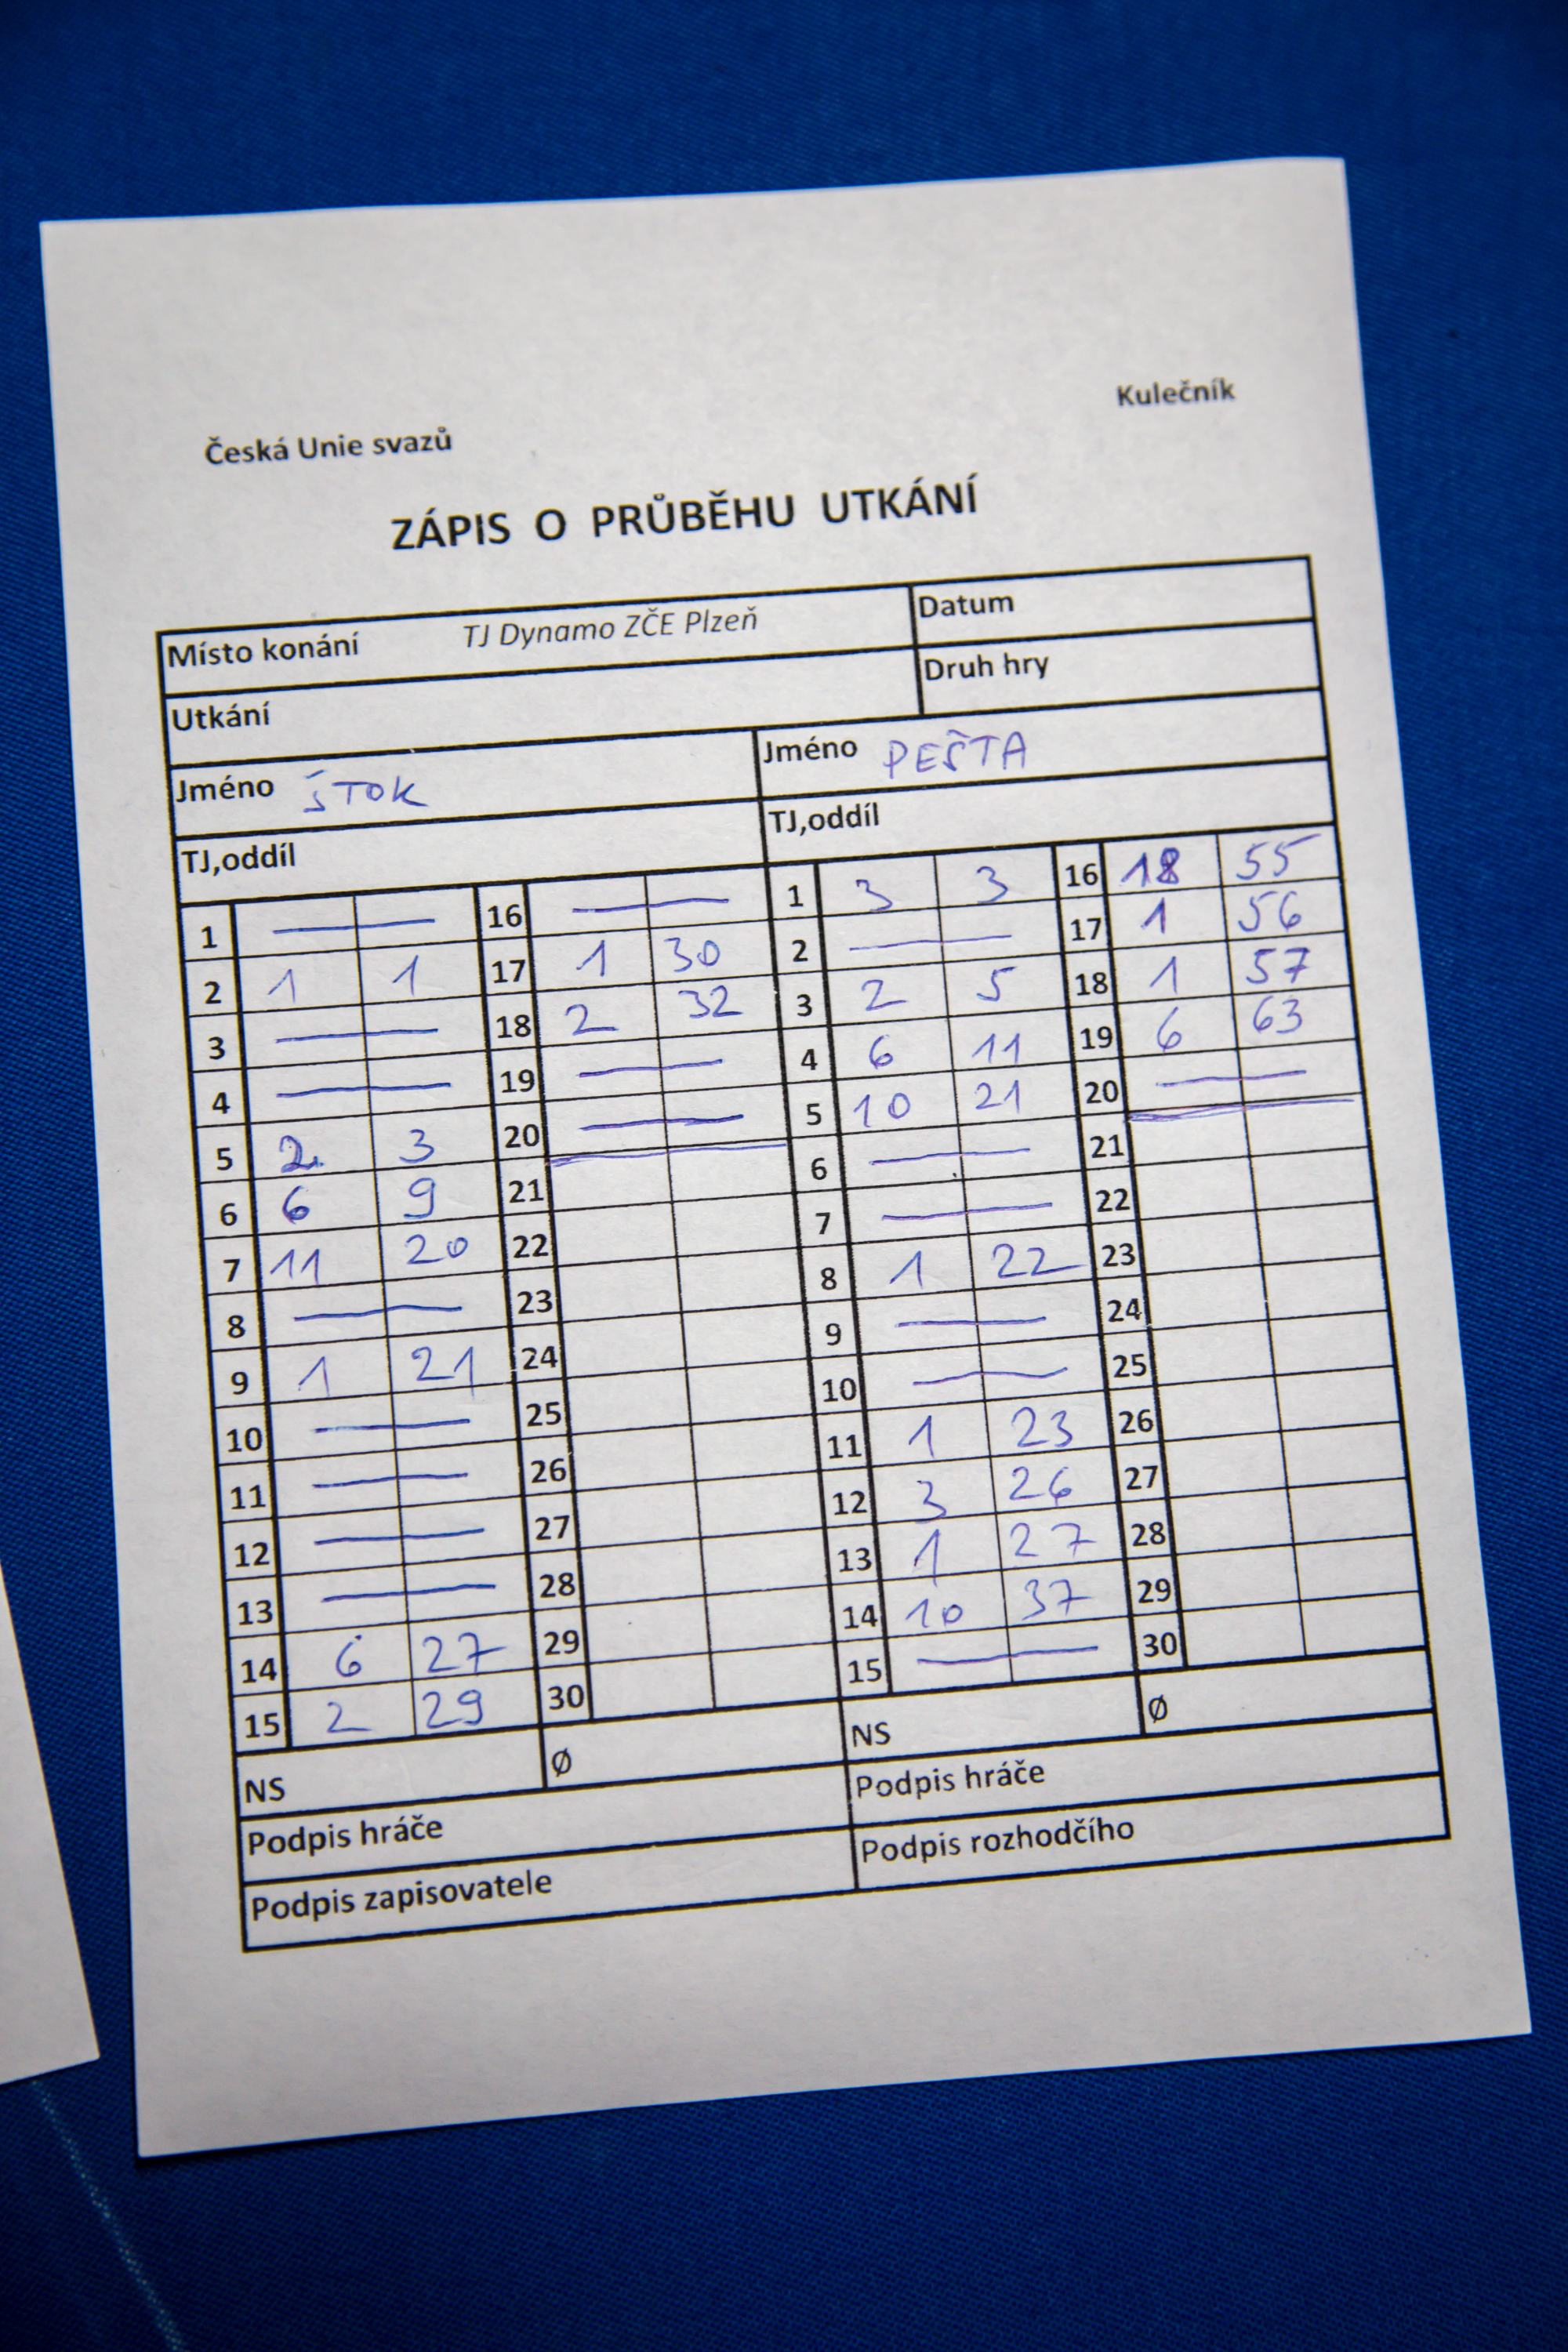 Kulečník
Česká Unie svazů
ZÁPIS O PRŮBĚHU UTKÁNÍ
Místo konání TJ Dynamo ZČE Plzeň Datum
Utkání Druh hry
Jméno ŠTOK Jméno PEŠTA
TJ,oddíl TJ,oddíl
1 — 16 — 1 3 3 16 18 55
2 1 1 17 1 30 2 — 17 1 56
3 — 18 2 32 3 2 5 18 1 57
4 — 19 — 4 6 11 19 6 63
5 2 3 20 — 5 10 21 20 —
6 6 9 21 6 — 21
7 11 20 22 7 — 22
8 — 23 8 1 22 23
9 1 21 24 9 — 24
10 — 25 10 — 25
11 — 26 11 1 23 26
12 — 27 12 3 26 27
13 — 28 13 1 27 28
14 6 27 29 14 10 37 29
15 2 29 30 15 — 30
NS Ø NS Ø
Podpis hráče Podpis hráče
Podpis zapisovatele Podpis rozhodčího